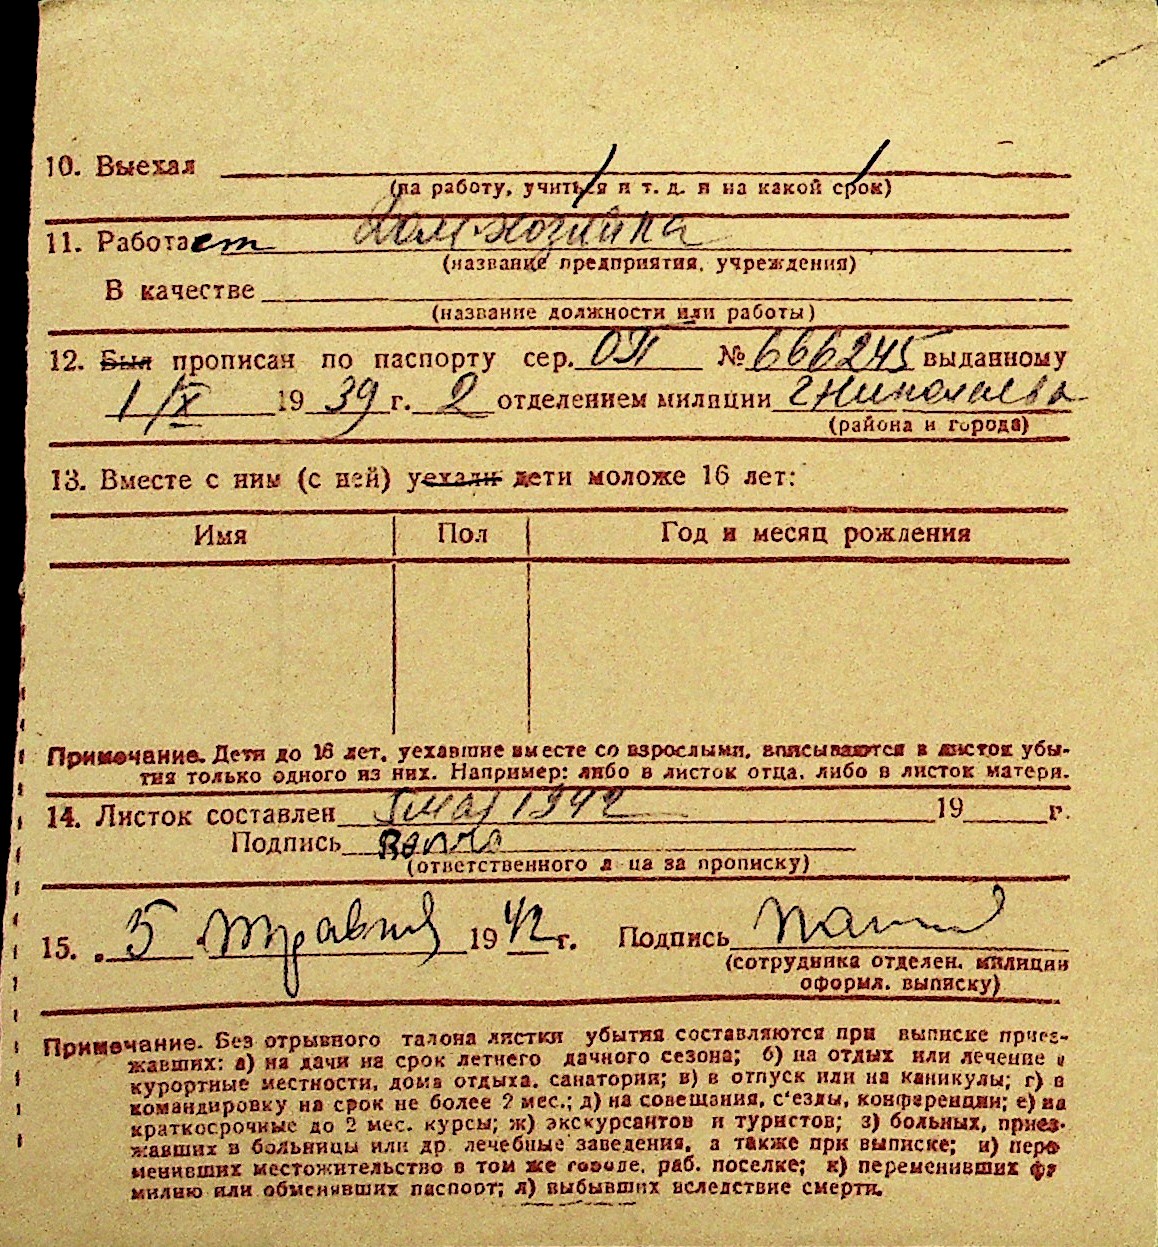 10. Выехал
(на работу, учиться и т. д. и на какой срок)
11. Работает Дом.хозяйка
(название предприятия, учреждения)
В качестве
(название должности или работы)
12. Был прописан по паспорту сер. ОП № 666245 выданному
1/IX 1939 г. 2 отделением милиции г Николаева
(района и города)
13. Вместе с ним (с ней) уехали дети моложе 16 лет:
Имя Пол Год и месяц рождения
Примечание. Дети до 16 лет, уехавшие вместе со взрослыми, вписываются в листок убы-
тия только одного из них. Например: либо в листок отца, либо в листок матери.
14. Листок составлен 5 мая 1942 19 г.
Подпись
(ответственного л ца за прописку)
15. 5 травня 1942 г. Подпись
(сотрудника отделен. милиции
оформл. выписку)
Примечание. Без отрывного талона листки убытия составляются при выписке приез-
жавших: а) на дачи на срок летнего дачного сезона; б) на отдых или лечение в
курортные местности, дома отдыха, санатории; в) в отпуск или на каникулы; г) в
командировку на срок не более 2 мес.; д) на совещания, с'езды, конференции; е) на
краткосрочные до 2 мес. курсы; ж) экскурсантов и туристов; з) больных, приез-
жавших в больницы или др. лечебные заведения, а также при выписке; и) пере
менивших местожительство в том же городе, раб. поселке; к) переменивших фа
милию или обменявших паспорт; л) выбывших вследствие смерти.